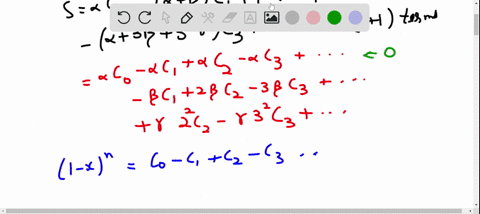 S = αC
+1) terms
- (α+3β+
= αC₀ - αC₁ + αC₂ - αC₃ + ⋯ < 0
- βC₁ + 2βC₂ - 3βC₃ + ⋯
+ γ 2²C₂ - γ 3²C₃ + ⋯
(1-x)ⁿ = C₀ - C₁ + C₂ - C₃ ⋯